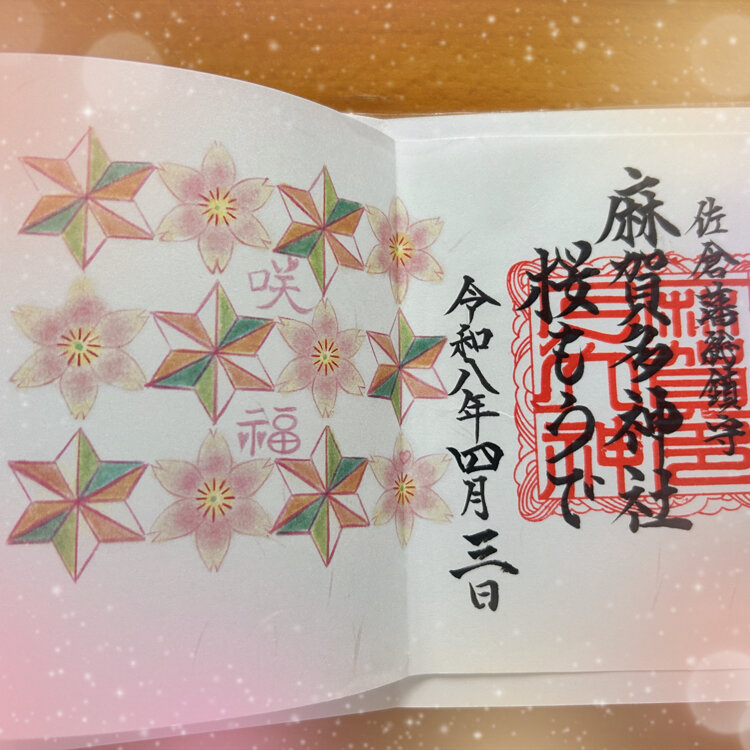 佐倉藩総鎮守
麻賀多神社
桜もうで
令和八年四月三日
咲
福